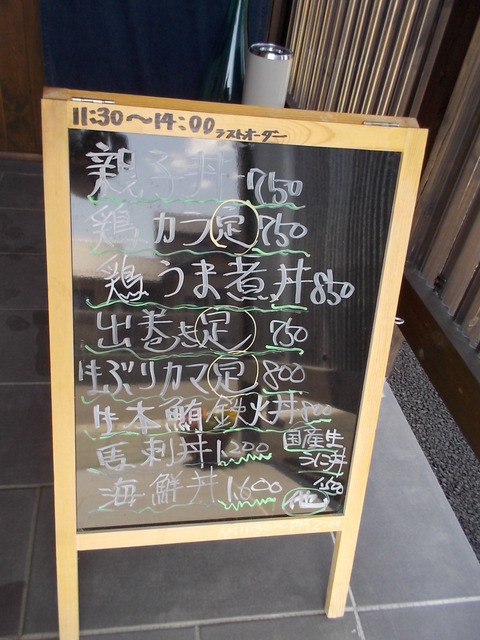 11:30～14:00 ラストオーダー
親子丼 750
鶏カラ定 750
鶏うま煮丼 850
出巻き定 750
生ぶりカマ定 800
生本鮪鉄火丼
馬刺丼 1,200
国産生
うに丼
海鮮丼 1,600
他